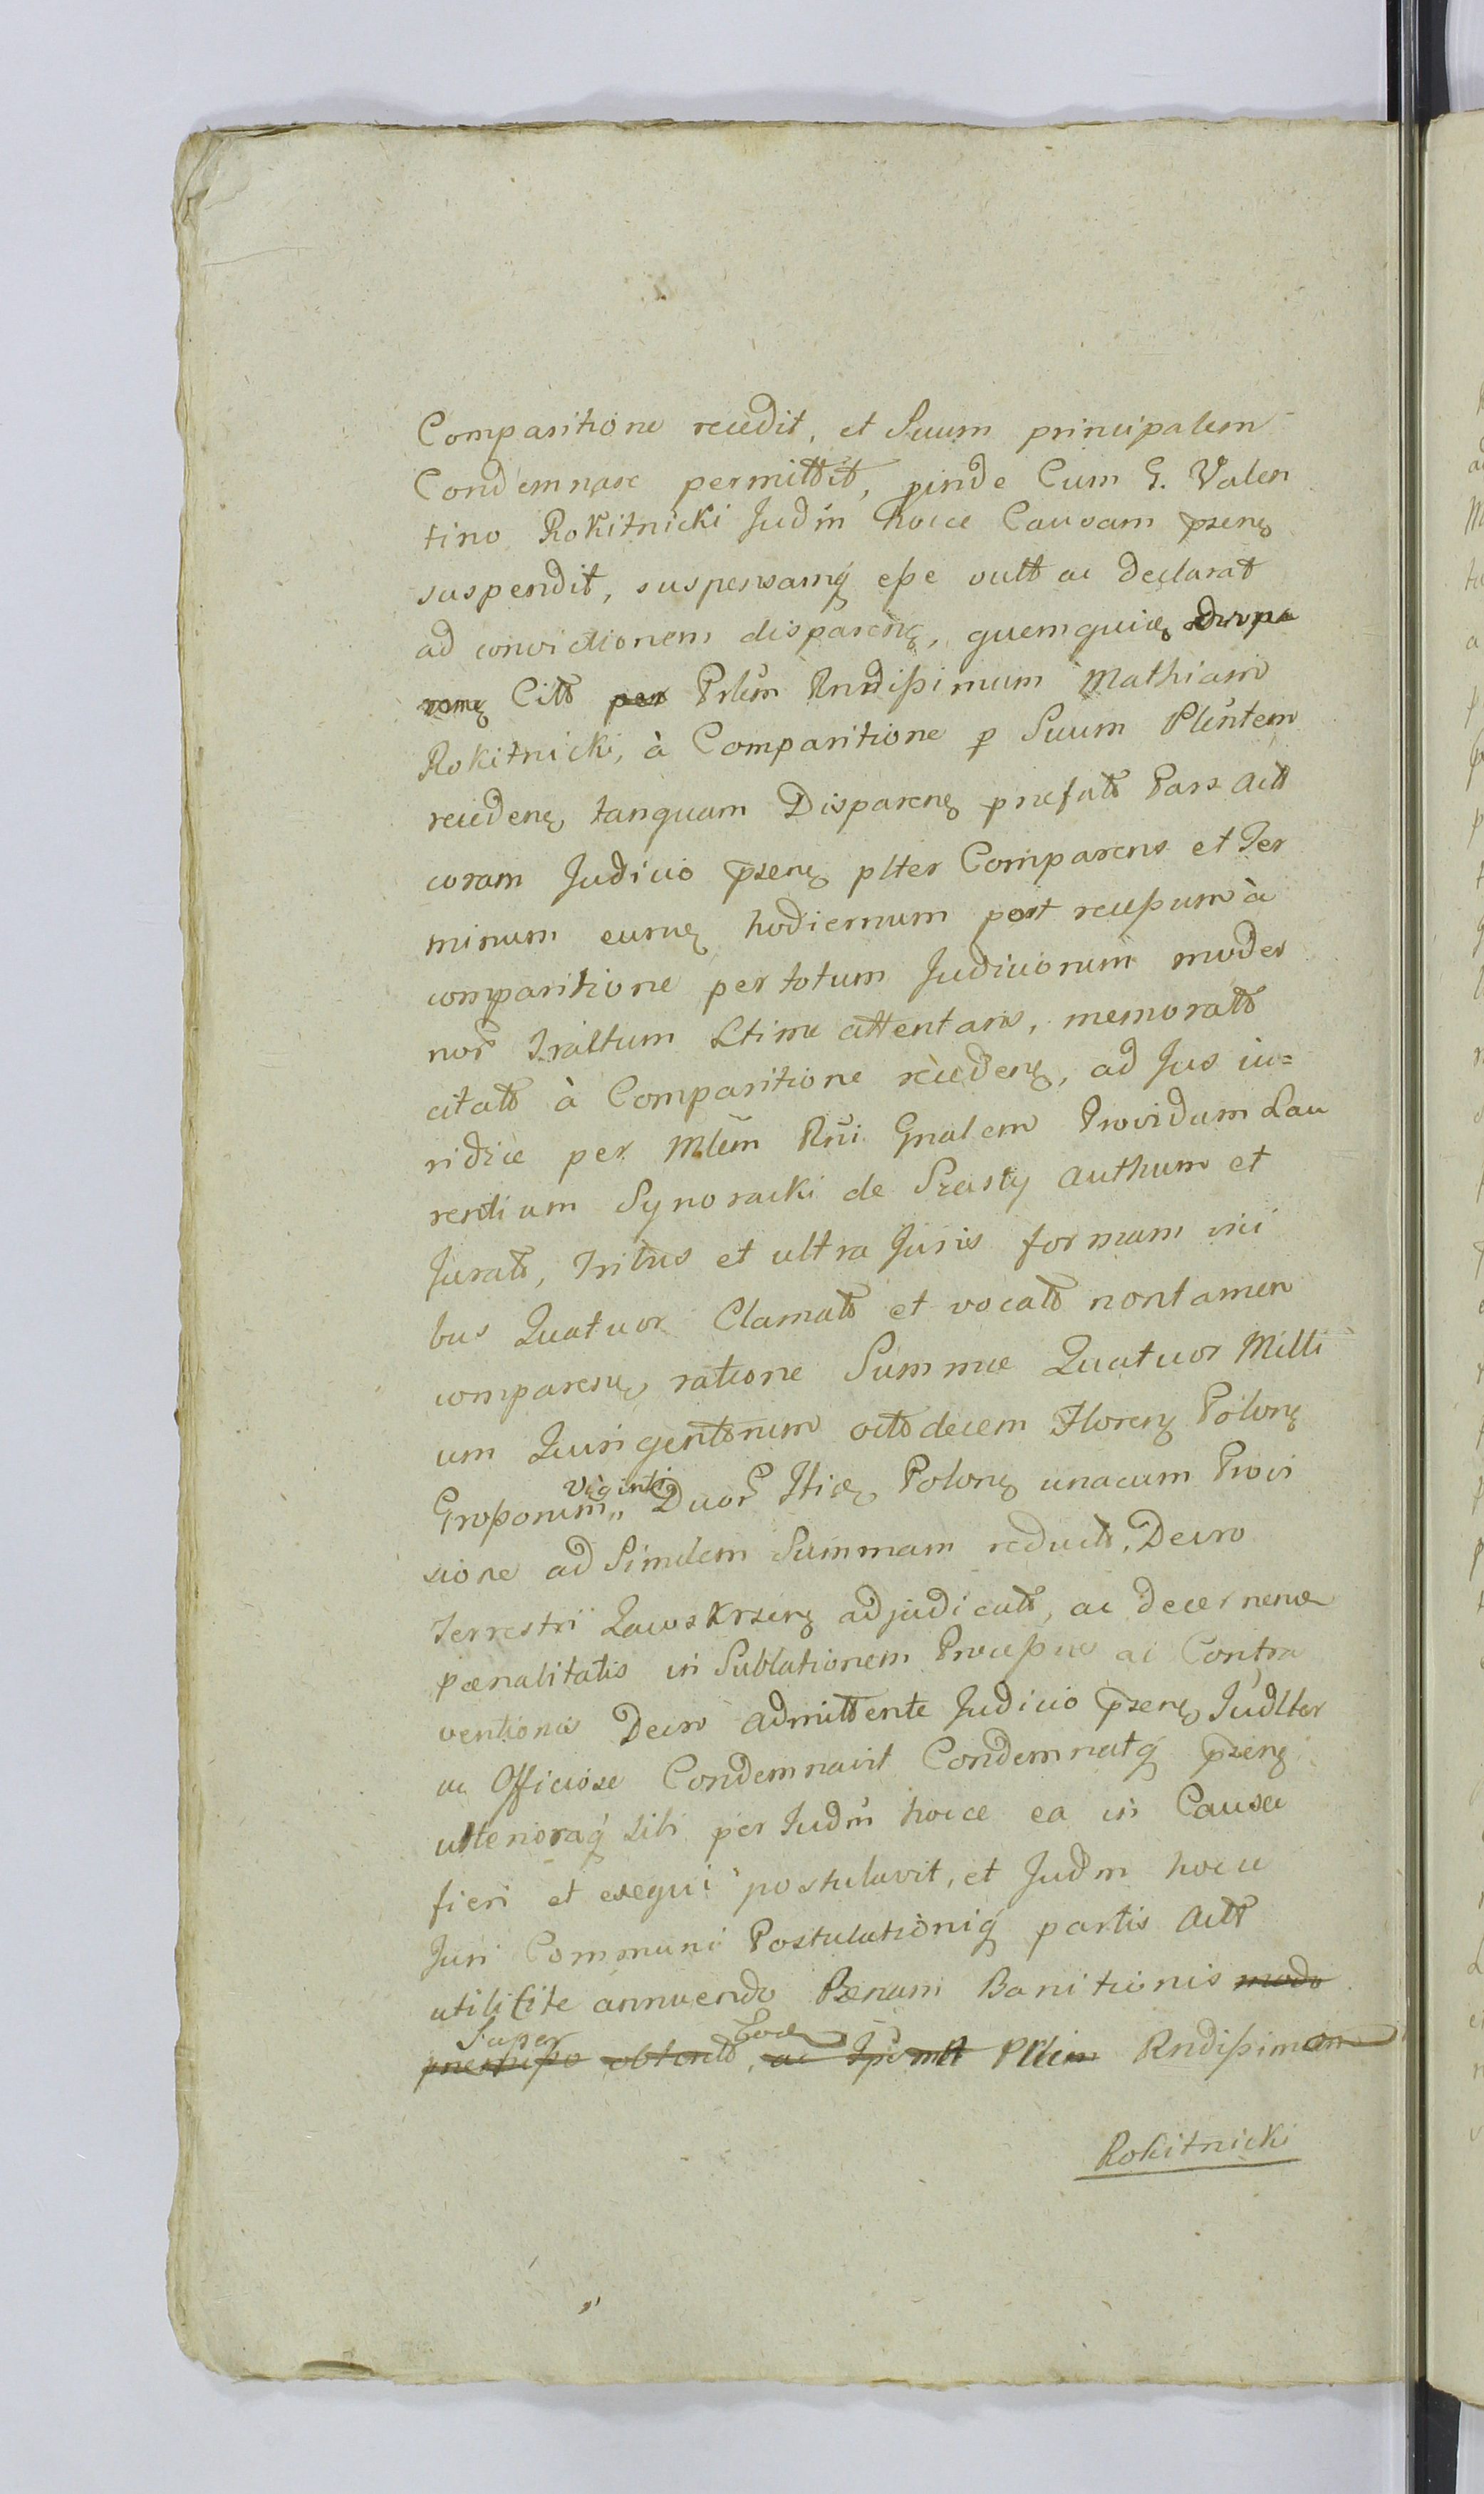 Comparitione recedit, et Suum principalem
Condemnare permittit, pinde Cum G. Valen
tino Rokitnicki Judm hocce Causam psenę
suspendit, suspensamq́ eße vult ac declarat
ad convictionem disparenę,
Citt per Prlem Rndißimum Mathiam
Rokitnicki, à Comparitione p Suum Plentem
recedenę tanquam Disparenę prefatt Pars Actt
coram Judicio psenę plter Comparens et Ter
minum eumę hodiernum post receßum à
comparitione per totum Judiciorum moder
nor Tractum Ltime attentans, memoratt
citatt à Comparitione recedenę, ad Jus iu=
ridice per Mlem Rni Gnalem Providum Lau
rentium Synoracki de Szczasty Authum et
Juratt, Tribus et ultra Juris formam vici
bus Quatuor Clamatt et vocatt nontamen
comparenę, ratione Summæ Quatuor Milli
um Quingentorum octodecem Florenę Polonę
Großorum „ Viginti Duor Itidę Polonę unacum Provi
sione ad Similem Summam reductt, Decro
Terrestri Zawskrzenę adjudicatt, ac decernenę
pœnalitatis in Sublationem Proceßus ac Contra
ventionis Decro admittente Judicio psenę Judlter
ac Officiose Condemnavit Condemnatq́ psenę
ulterioraq́ sibi per Judm hocce ea in Causa
fieri et exequi postulavit, et Judm hocce
Juri Communi Postulationiq́ partis Actt
utilitite annuendo Pœnam Banitionis modo
Super
præmißo obtentt, ac Rndißimum
Rokitnicki